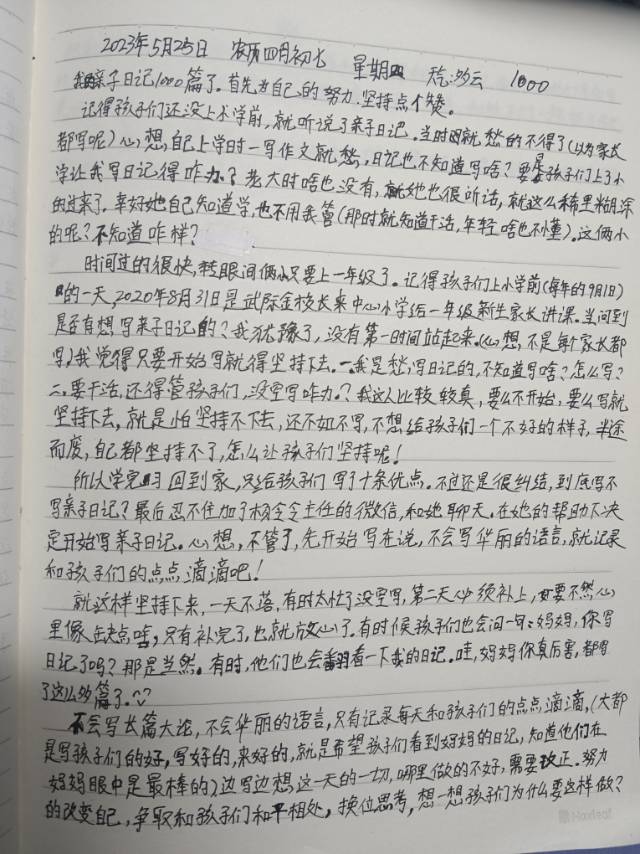 2023年5月25日 农历四月初七 星期四 稀:沙云 1000
亲子日记1000篇了。首先为自己的努力.坚持点个赞。
记得孩子们还没上小学前,就听说了亲子日记。当时就愁的不得了(以为家长
都写呢)心想,自己上学时一写作文就愁,日记也不知道写啥?要是孩子们上了小
学让我写日记得咋办?老大时啥也没有,就她也很听话,就这么稀里糊涂
的过来了。幸好她自己知道学,也不用我管(那时就知道干活,年轻啥也不懂)。这俩小
的呢?不知道咋样?
时间过的很快,转眼间俩小只要上一年级了。记得孩子们上小学前(每年的9月1日)
的一天,2020年8月31日是武际金校长来中心小学给一年级新生家长讲课。当问到
是否有想写亲子日记的?我犹豫了,没有第一时间站起来。(心想,不是每个家长都
写)我觉得只要开始写就得坚持下去。一我是愁写日记的,不知道写啥?怎么写?
二,要干活,还得管孩子们,没空写咋办?我这人比较较真,要么不开始,要么写就
坚持下去,就是怕坚持不下去,还不如不写,不想给孩子们一个不好的样子,半途
而废,自己都坚持不了,怎么让孩子们坚持呢!
所以学完习回到家,只给孩子们写了十条优点。不过还是很纠结,到底写不
写亲子日记?最后忍不住加了杨令令主任的微信,和她聊天。在她的帮助下决
定开始写亲子日记。心想,不管了,先开始写在说,不会写华丽的语言,就记录
和孩子们的点点滴滴吧!
就这样坚持下来,一天不落,有时太忙了没空写,第二天必须补上,要不然心
里像缺点啥,只有补完了,也就放心了。有时候孩子们也会问一句:妈妈,你写
日记了吗?那是当然。有时,他们也会翻看一下我的日记。哇,妈妈你真厉害,都写
了这么多篇了。
不会写长篇大论,不会华丽的语言,只有记录每天和孩子们的点点滴滴,(大都
是写孩子们的好,写好的,来好的,就是希望孩子们看到妈妈的日记,知道他们在
妈妈眼中是最棒的)边写边想,这一天的一切,哪里做的不好,需要改正.努力
的改变自己,争取和孩子们和平相处,换位思考,想一想孩子们为什么要这样做?